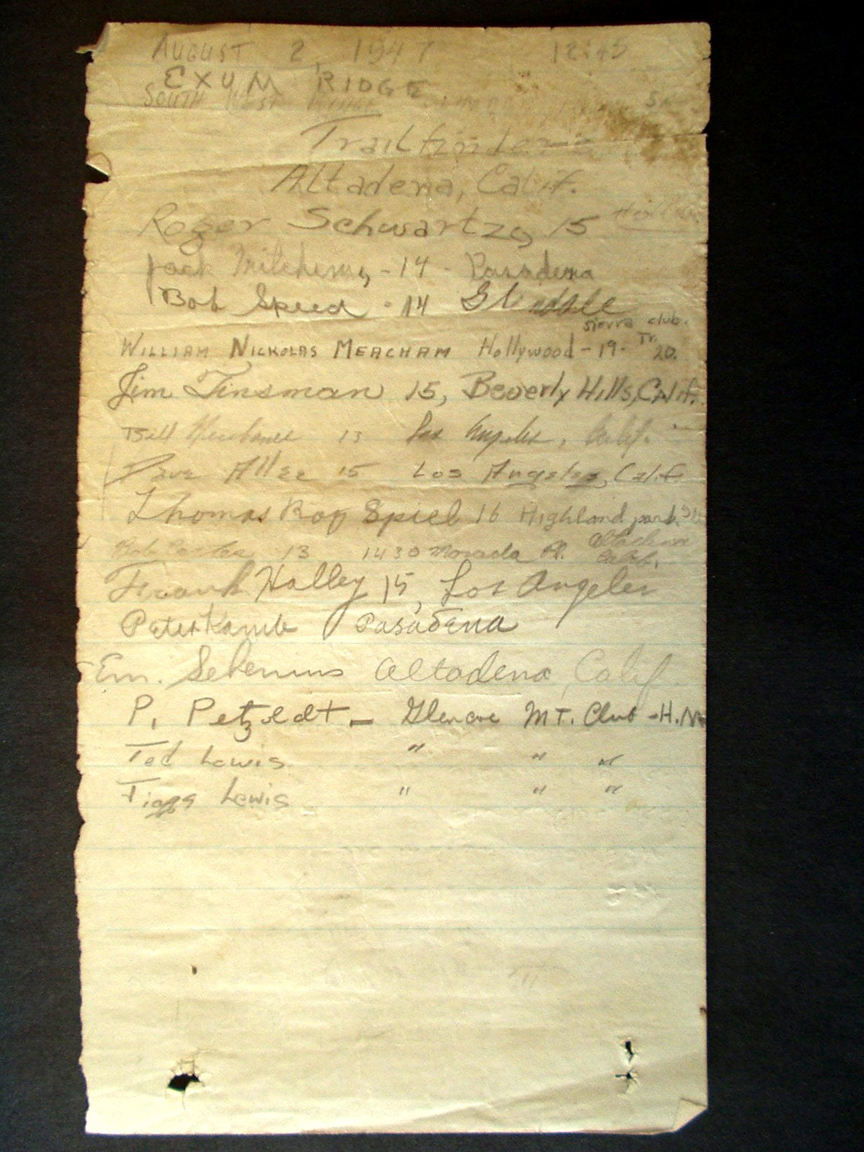 AUGUST 2, 1947 12:45
EXUM RIDGE
SOUTH WEST
Trailfinders
Altadena, Calif.
Roger Schwartz, 15
Jack - 14 - Pasadena
Bob Speed - 14 Glendale
Sierra club.
WILLIAM NICKOLAS MEACHAM Hollywood - 19 - Tr. 20.
Jim Tinsman 15, Beverly Hills, Calif.
Bill 13 Los Angeles, Calif.
Dave Allee 15 Los Angeles, Calif
Thomas Roy Spiel 16 Highland park
Bob 13 1430 Morada Pl. Altadena Calif.
Frank Halley 15, Los Angeles
Peter Kamb Pasadena
Em. Altadena, Calif.
P. Petzoldt - Glencoe MT. Club - H.M
Ted Lewis " " "
Lewis " " "